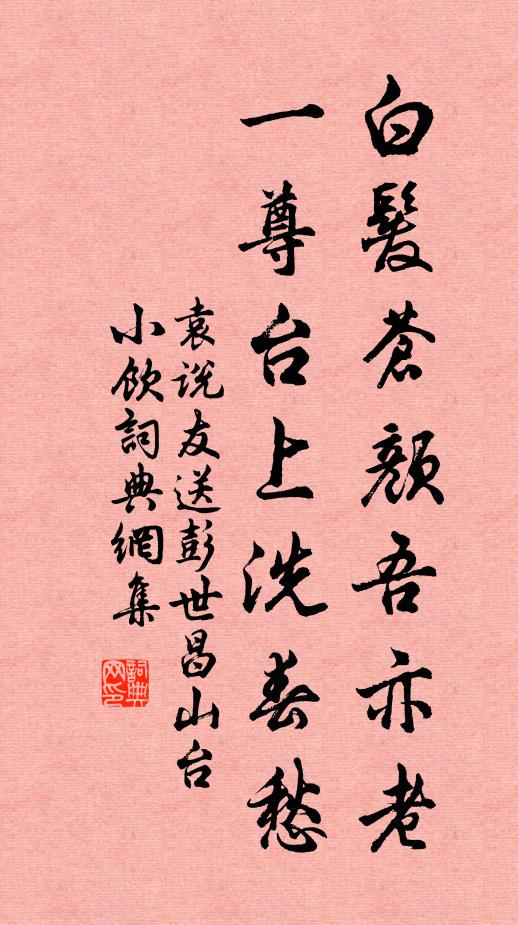 白髮蒼顏吾亦老
一尊台上洗春愁
袁說友送彭世昌山台
小飲詞典網集
詞典网印